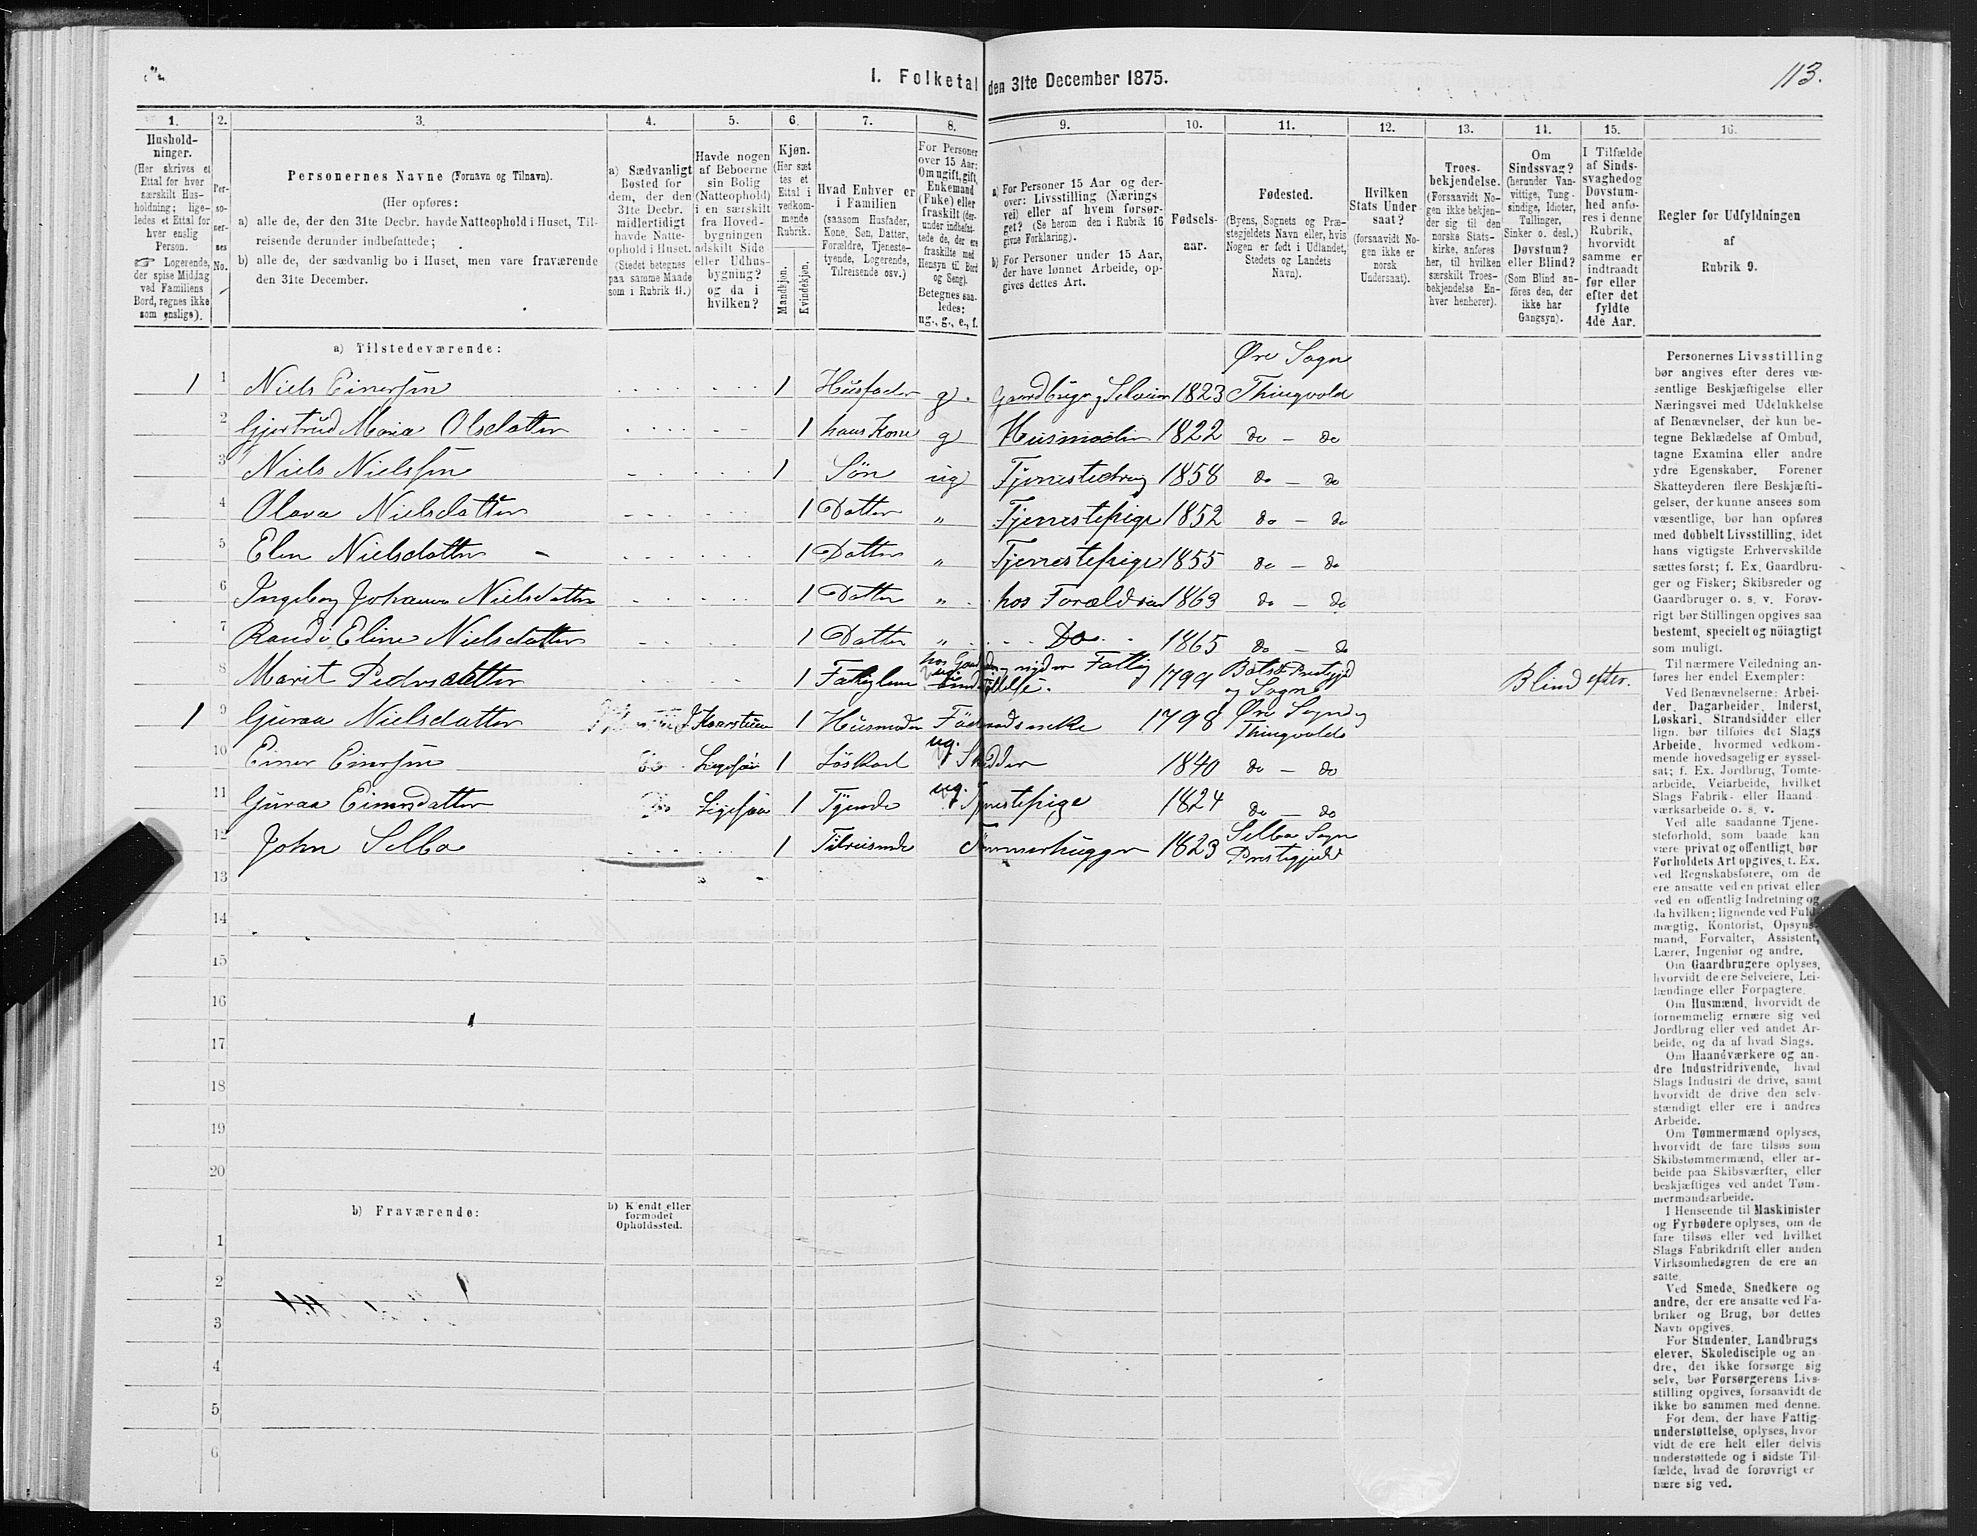 I. Folketal den 31te December 1875.
113.
1.
Husholdninger.
(Her skrives et
Ettal for hver
særskilt Husholdning;
ligeledes et Ettal for
hver enslig
Person.
☞ Logerende,
der spise Middag
ved Familiens
Bord, regnes ikke
som enslige).
2.
Personernes
No.
3.
Personernes Navne (Fornavn og Tilnavn).
(Her opføres:
a) alle de, der den 31te Decbr. havde Natteophold i Huset, Tilreisende derunder indbefattede;
b) alle de, der sædvanlig bo i Huset, men vare fraværende
den 31te December.
4.
a) Sædvanligt
Bosted for
dem, der den
31te Decbr.
midlertidigt
havde Natteophold i Huset.
(Stedet betegnes
paa samme Maade
som i Rubrik 11.)
5.
Havde nogen
af Beboerne
sin Bolig
(Natteophold)
i en særskilt
fra Hovedbygningen
adskilt Side
eller Udhusbygning?
og da i
hvilken?
6.
Kjøn.
(Her sættes et
Ettal i
vedkommende
Rubrik.
Mandkjøn.
Kvindekjøn.
7.
Hvad Enhver er
i Familien
(saasom Husfader,
Kone, Søn, Datter,
Forældre, Tjenestetyende, Logerende,
Tilreisende osv.)
8.
For Personer
over 15 Aar:
Om ugift, gift,
Enkemand
(Enke) eller
fraskilt
Betegnes saaledes:
ug., g., e., f.
9.
a) For Personer 15 Aar og derover: Livsstilling (Næringsvei) eller af hvem forsørget? (Se herom den i Rubrik 16
givne Forklaring).
b) For Personer under 15 Aar,
der have lønnet Arbeide, opgives dettes Art.
10.
Fødselsaar.
11.
Fødested.
(Byens, Sognets og Præstegjeldets Navn eller, hvis
Nogen er født i Udlandet,
Stedets og Landets
Navn).
12.
Hvilken
Stats Undersaat?
(forsaavidt Nogen ikke er
norsk
Undersaat).
13.
Troesbekjendelse.
(Forsaavidt Nogen ikke bekjender sig til den
norske Statskirke, anføres
her, til hvilken
særskilt Troesbekjendelse Enhver henhører).
14.
Om
Sindssvag?
(herunder Vanvittige, Tungsindige, Idioter,
Tullinger,
Sinker o. desl.)
Døvstum?
eller Blind?
(Som Blind anføres den, der
ikke har
Gangsyn).
15.
I Tilfælde
af Sindssvaghed og
Døvstumhed anføres i denne
Rubrik,
hvorvidt
samme er
indtraadt
før eller
efter det
fyldte
4de Aar.
16.
Regler for Udfyldningen
af
Rubrik 9.
a) Tilstedeværende:
Øre Sogn
1 1 Niels Einersen 1 Husfader g. Gaardbruger Selveier 1823 Thingvold
2 Gjertrud Maria Olsdatter 1 hans Kone g Husmoder 1822 do - do
3 Niels Nielssen 1 Søn ug Tjenestedreng 1858 do - do
4 Olava Nielsdatter 1 Datter „ Tjenestepige 1852 do - do
5 Elen Nielsdatter 1 Datter „ Tjenestepige 1855 do - do
6 Ingeborg Johanna Nielsdatter 1 Datter „ hos Forældrene 1863 do - do
7 Randi Eline Nielsdatter 1 Datter „ Do 1865 do - do
8 Marit Pedersdatter 1 1799 og Sogn Blind efter.
1 9 Guraa Nielsdatter 1 Husmoder 1798 Øre Sogn Thingvolds
10 Einer Einersen Do Ligesaa 1 Løskarl ug. Skrædder 1840 do - do
11 Guraa Einersdatter Do Ligesaa 1 Tyende ug. Tjenestepige 1824 do - do
12 John Selbo 1 Tilreisende Tømmerhugger 1823 Selbo Sogn Prestegjeld
13
14
15
16
17
18
19
20
b) Fraværende:
b) Kjendt eller
formodet
Opholdssted.
1
2
3
4
5
6
Personernes Livsstilling
bør angives efter deres væsentlige Beskjæftigelse eller
Næringsvei med Udelukkelse
af Benævnelser, der kun betegne Beklædelse af Ombud,
tagne Examina eller andre
ydre Egenskaber. Forener
Skatteyderen flere Beskjæftigelser, der kunne ansees som
væsentlige, bør han opføres
med dobbelt Livsstilling, idet
hans vigtigste Erhvervskilde
sættes først; f. Ex. Gaardbruger og Fisker; Skibsreder og
Gaardbruger o. s. v. Forøvrigt bør Stillingen opgives saa
bestemt, specielt og nöiagtigt
som muligt.
Til nærmere Veiledning anføres her endel Exempler:
Ved Benævnelserne: Arbeider, Dagarbeider, Inderst,
Løskarl, Strandsidder eller
lign. bør tilføies det Slags
Arbeide, hvormed vedkommende hovedsagelig er sysselsat; f. Ex. Jordbrug, Tomtearbeide, Veiarbeide, hvilket
Slags Fabrik- eller Haandværksarbeide o. s. v.
Ved alle saadanne Tjenesteforhold, som baade kan
være privat og offentligt, bør
Forholdets Art opgives, t. Ex.
ved Regnskabsførere, om de
ere ansatte ved en privat eller
ved en offentlig Indretning og
da hvilken; lignende ved Fuldmægtig, Kontorist, Opsynsmand, Forvalter, Assistent,
Lærer, Ingeniør og andre.
Om Gaardbrugere oplyses,
hvorvidt de ere Selveiere, Leilændinge eller Forpagtere.
Om Husmænd, hvorvidt de
fornemmelig ernære sig ved
Jordbrug eller ved andet Arbeide, og da af hvad Slags.
Om Haandværkere og andre Industridrivende, hvad
Slags Industri de drive, samt
hvorvidt de drive den selvstændigt eller ere i andres
Arbeide.
Om Tømmermænd oplyses,
hvorvidt de fare tilsøs som
Skibstømmermænd, eller arbeide paa Skibsværfter, eller
beskjæftiges ved andet Tømmermandsarbeide.
I Henseende til Maskinister
og Fyrbødere oplyses, om de
fare tilsøs eller ved hvilket
Slags Fabrikdrift eller anden
Virksomhedsgren de ere ansatte.
Ved Smede, Snedkere og
andre, der ere ansatte ved Fabriker og Brug, bør dettes
Navn opgives.
For Studenter, Landbrugselever, Skoledisciple og andre, der ikke forsørge sig
selv, bør Forsørgerens Livsstilling opgives, forsaavidt de
ikke bo sammen med denne.
For dem, der have Fattigunderstøttelse, oplyses, hvorvidt de ere helt eller delvis
understøttede og i sidste Tilfælde, hvad de forøvrigt ernære sig ved.